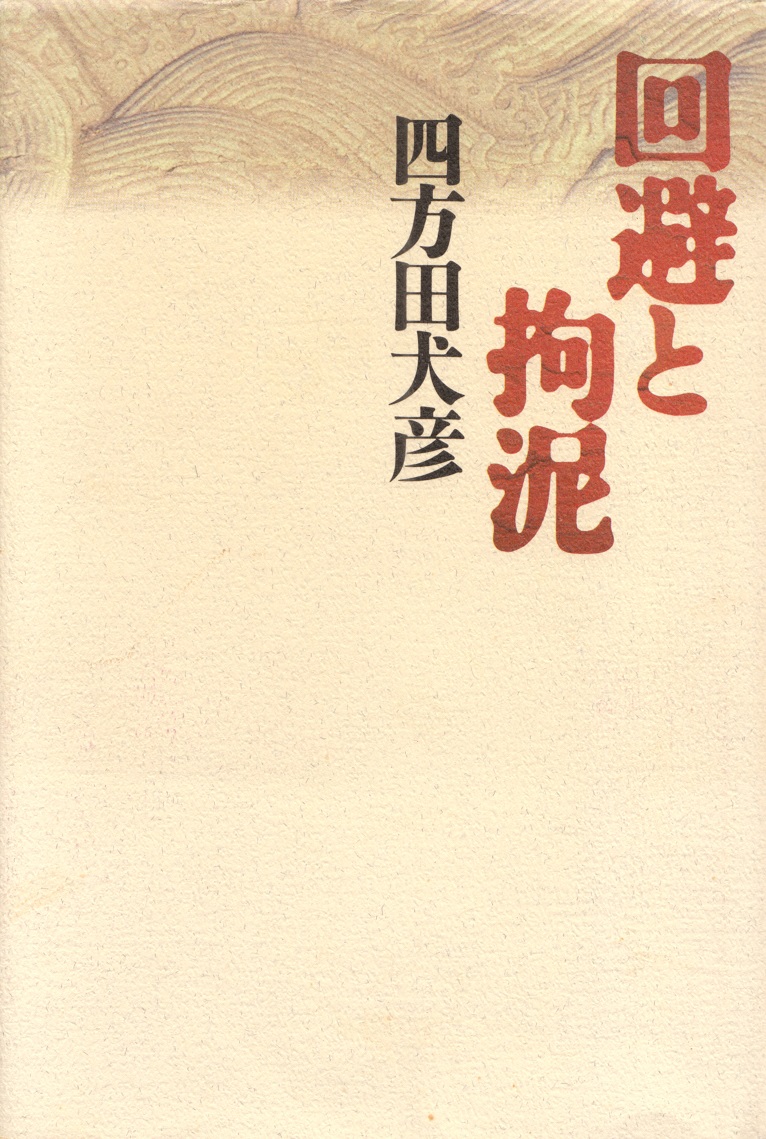 回避と
拘泥
四方田犬彦